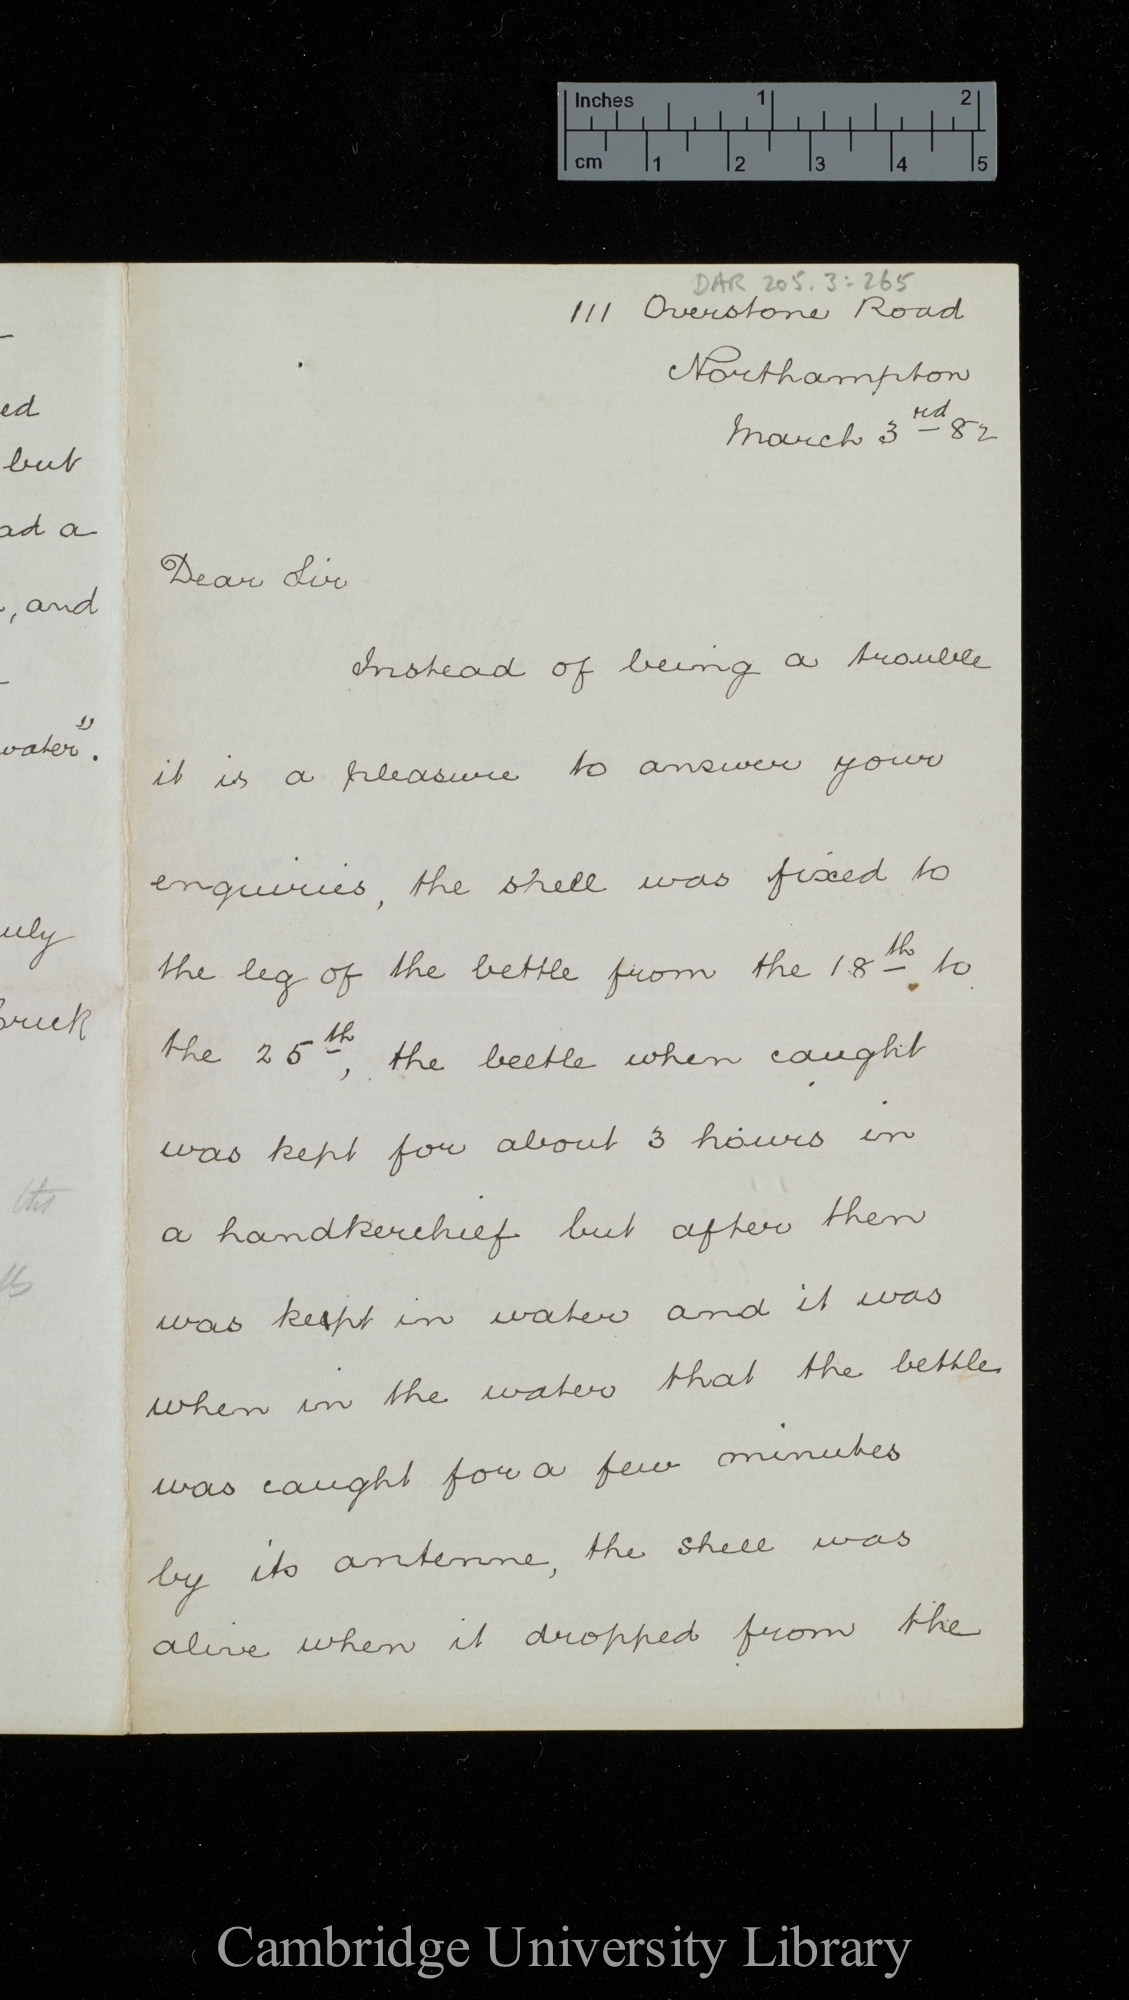 Inches 1 2
cm 1 2 3 4 5
ed
but
ad a
, and
water".
uly
brick
DAR 205.3:265
111 Overstone Road
Northampton
March 3rd 82
Dear Sir
Instead of being a trouble
it is a pleasure to answer your
enquiries, the shell was fixed to
the leg of the bettle from the 18th to
the 25th, the beetle when caught
was kept for about 3 hours in
a handkerchief but after then
was kept in water and it was
when in the water that the bettle
was caught for a few minutes
by its antenne, the shell was
alive when it dropped from the
Cambridge University Library